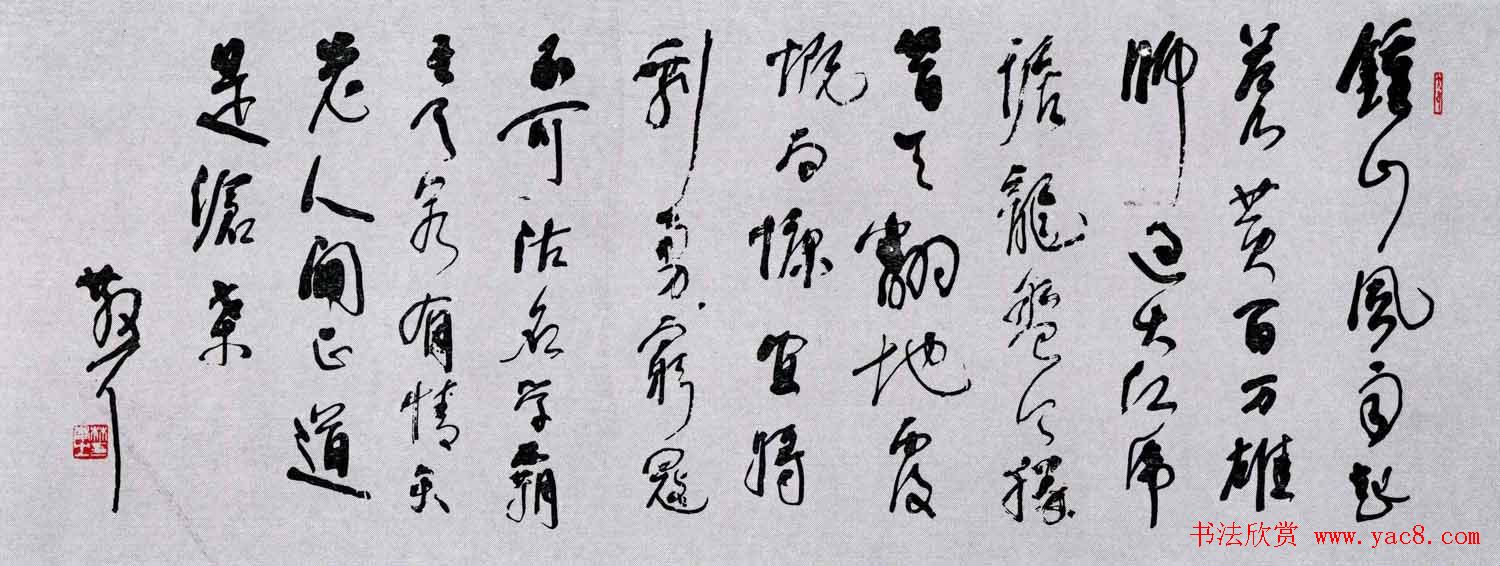 鍾山風雨起
蒼黄百万雄
師过大江虎
踞龍盤今勝
昔天翻地覆
慨而慷宜將
剩勇窮寇
不可沽名学霸
王天若有情天
老人間正道
是滄桑
散耳
书法欣赏 www.yac8.com